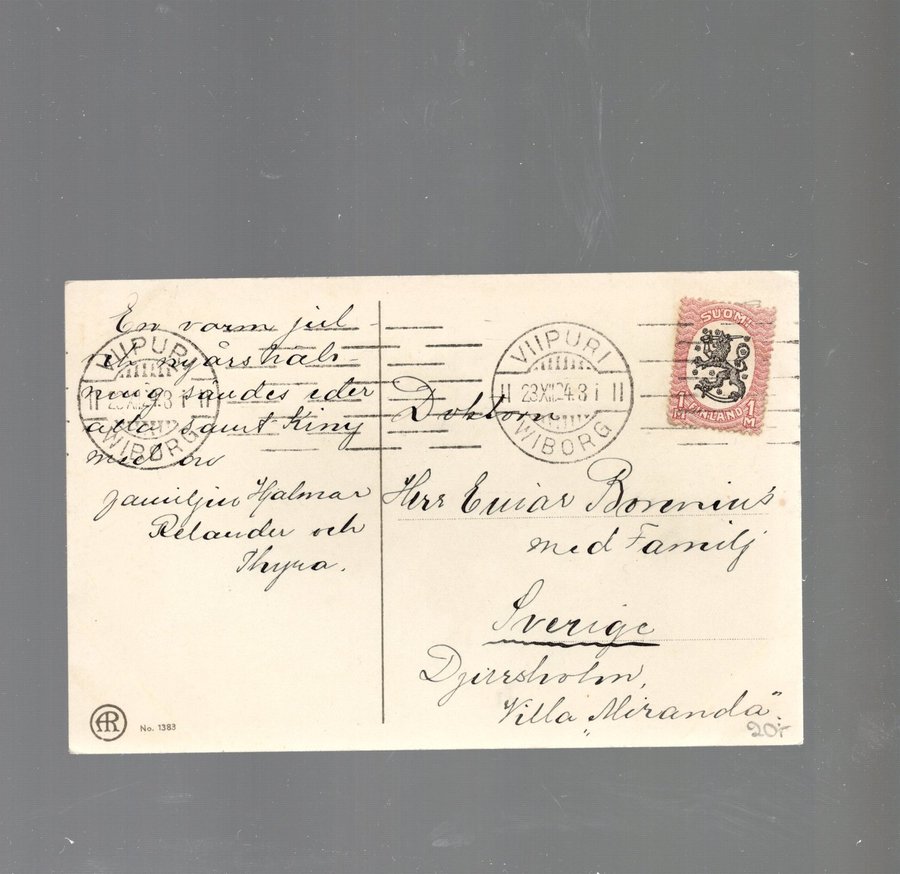 En varm jul
och nyårshäls-
ning sändes eder
alla samt
med
familjen Hjalmar
Relander och
Thyra.
VIIPURI
WIBORG
VIIPURI
23.XII.24.8 I
WIBORG
SUOMI
FINLAND
1 M
1 M
Doktorn
Herr Einar Borenius
med Familj
Sverige
Djursholm,
Villa „Miranda".
20:-
AR
No. 1383